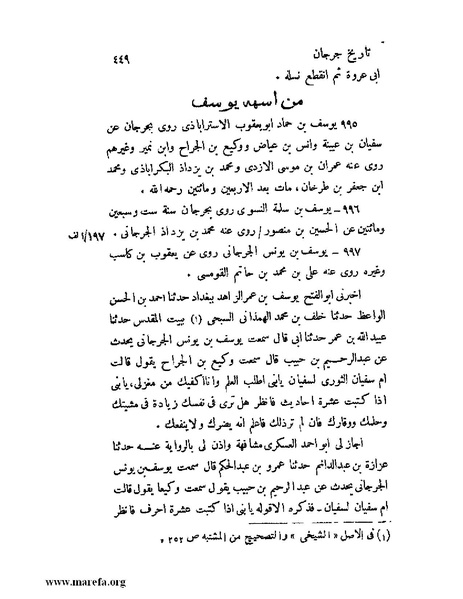 تاريخ جرجان ٤٤٩
ابى عروة ثم انقطع نسله .
من اسمه يوسف
٩٩٥ يوسف بن حماد ابو يعقوب الاستراباذى روى بجرجان عن
سفيان بن عيينة وانس بن عياض ووكيع بن الجراح وابن نمير وغيرهم
روى عنه عمران بن موسى الازدى ومحمد بن يزداذ البكراباذى ومحمد
ابن جعفر بن طرخان، مات بعد الاربعين ومائتين رحمه الله .
٩٩٦- يوسف بن سلمة النسوى روى بجرجان سنة ست وسبعين
ومائتين عن الحسين بن منصور/ روى عنه محمد بن يزداذ الجرجانى . ١٩٧/الف
٩٩٧ - يوسف بن يونس الجرجانى روى عن يعقوب بن كاسب
وغيره روى عنه على بن محمد بن حاتم القومسى .
اخبرنى ابوالفتح يوسف بن عمر الزاهد ببغداد حدثنا احمد بن الحسن
الواعظ حدثنا خلف بن محمد الهمذانى السبحى (١) ببيت المقدس حدثنا
عبيدالله بن عمر حدثنا ابى قال سمعت يوسف بن يونس الجرجانى يحدث
عن عبدالرحيم بن حبيب قال سمعت وكيع بن الجراح يقول قالت
ام سفيان الثورى لسفيان يابنى اطلب العلم وانا اكفيك من مغزلى، يابنى
اذا كتبت عشرة احاديث فانظر هل ترى فى نفسك زيادة فى مشيتك
وحلمك ووقارك فان لم ترذلك فاعلم انه يضرك ولا ينفعك .
اجاز لى ابو احمد العسكرى مشافهة واذن لى بالرواية عنه حدثنا
عزازة بن عبدالدائم حدثنا عمرو بن عبدالحكم قال سمعت يوسف بن يونس
الجرجانى يحدث عن عبد الرحيم بن حبيب يقول سمعت وكيعا يقول قالت
ام سفيان لسفيان - فذكره الا قوله يابنى اذا كتبت عشرة احرف فانظر
(١) فى الاصل « الشيخى » والتصحيح من المشتبه ص ٢٥٢ »
www.marefa.org